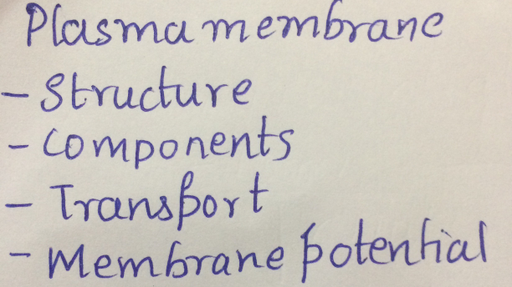 Plasma membrane
- Structure
- Components
- Transport
- Membrane potential